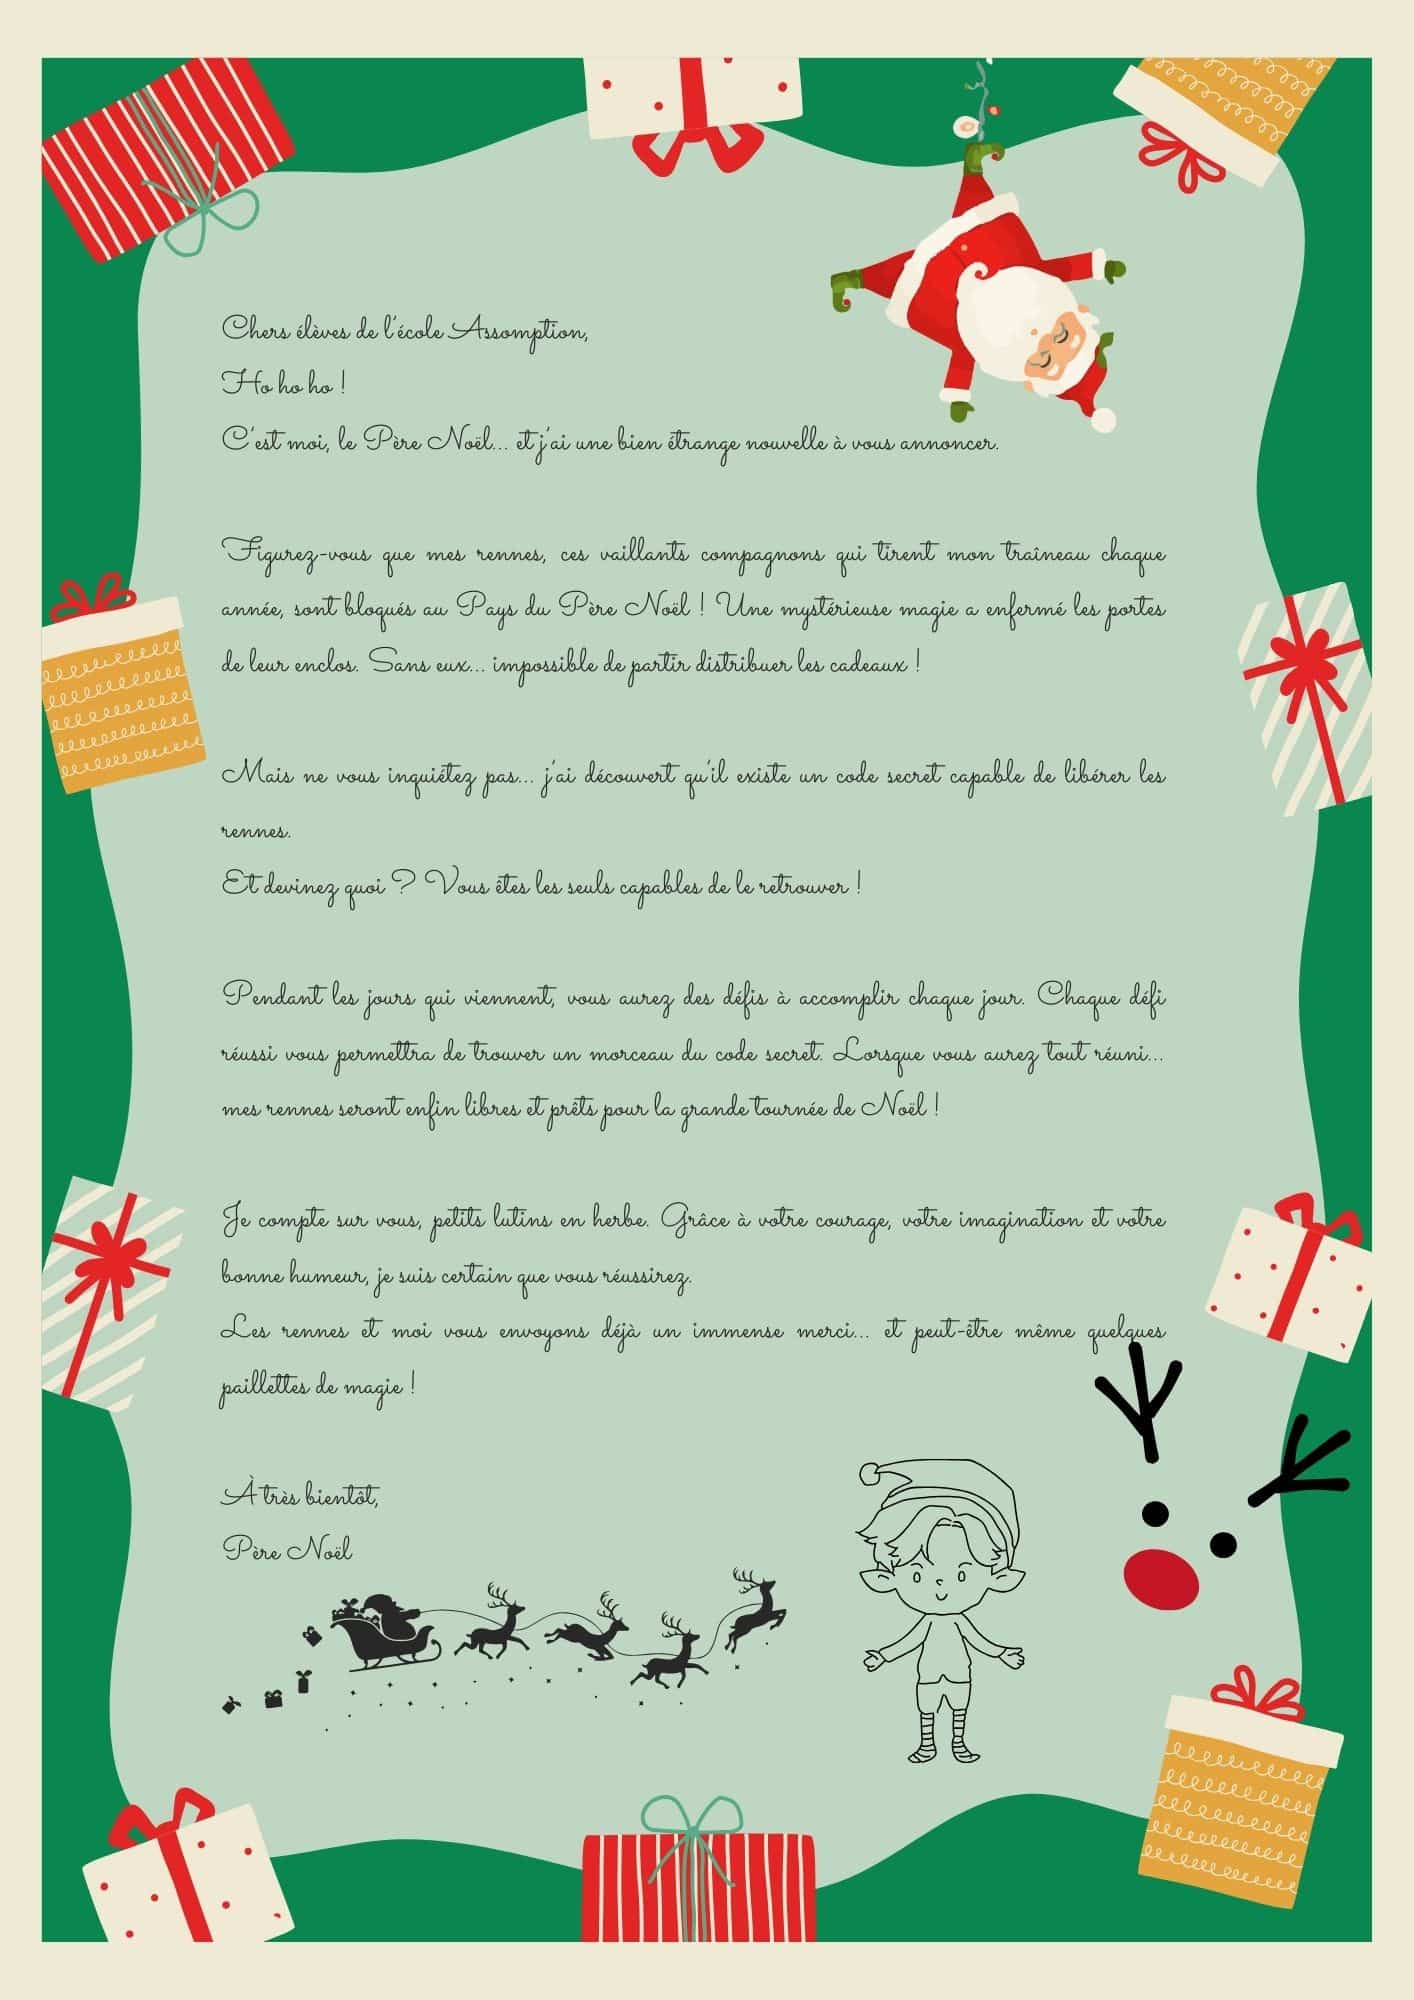 Chers élèves de l'école Assomption,
Ho ho ho !
C'est moi, le Père Noël... et j'ai une bien étrange nouvelle à vous annoncer.
Figurez-vous que mes rennes, ces vaillants compagnons qui tirent mon traîneau chaque
année, sont bloqués au Pays du Père Noël ! Une mystérieuse magie a enfermé les portes
de leur enclos. Sans eux... impossible de partir distribuer les cadeaux !
Mais ne vous inquiétez pas... j'ai découvert qu'il existe un code secret capable de libérer les
rennes.
Et devinez quoi ? Vous êtes les seuls capables de le retrouver !
Pendant les jours qui viennent, vous aurez des défis à accomplir chaque jour. Chaque défi
réussi vous permettra de trouver un morceau du code secret. Lorsque vous aurez tout réuni...
mes rennes seront enfin libres et prêts pour la grande tournée de Noël !
Je compte sur vous, petits lutins en herbe. Grâce à votre courage, votre imagination et votre
bonne humeur, je suis certain que vous réussirez.
Les rennes et moi vous envoyons déjà un immense merci... et peut-être même quelques
paillettes de magie !
À très bientôt,
Père Noël